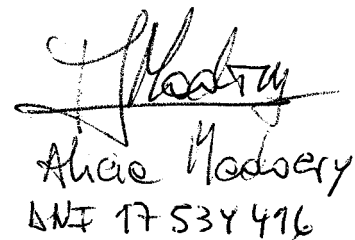 Alicia Madoery
DNI 17 534 416